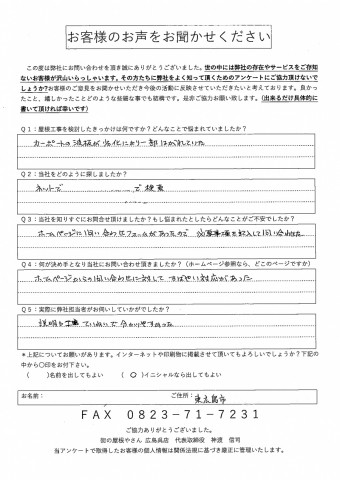 お客様のお声をお聞かせください
この度は弊社にお問い合わせを頂き誠にありがとうございました。世の中には弊社の存在やサービスをご存知
ないお客様が沢山いらっしゃいます。その方たちに弊社をよく知って頂くためのアンケートにご協力頂けないで
しょうか?お客様のご意見をお聞かせいただき今後の活動に反映させていただきたいと考えております。良かっ
たこと、嬉しかったことどのような些細な事でも結構です。是非ご協力お願い致します。(出来るだけ具体的に
書いて頂ければ幸いです)
Q1:屋根工事を検討したきっかけは何ですか?どんなことで悩まれていましたか?
カーポートの波板が劣化により一部はがれていた
Q2:当社をどのように探しましたか?
ネットで で検索
Q3:当社を知りすぐにお問合せ頂けましたか?もし悩まれたとしたらどんなことがご不安でしたか?
ホームページに問い合わせフォームがあったので 必要事項を記入して問い合わせた
Q4:何が決め手となり当社にお問い合わせ頂きましたか?(ホームページ参照なら、どこのページですか)
ホームページからの問い合わせに対して すばやい対応があった
Q5:実際に弊社担当者がお伺いしていかがでしたか?
説明も丁寧 ていねいで分かりやすかった
*上記についてお願いがあります。インターネットや印刷物に掲載させて頂いてもよろしいでしょうか?下記の
中から○印をお付け下さい。
( )名前を出してもよい (○)イニシャルなら出してもよい
お名前: ご住所: 東広島市
FAX 0823-71-7231
ご協力ありがとうございました。
街の屋根やさん 広島呉店 代表取締役 神渡 信司
当アンケートで取得したお客様の個人情報は関係法規に基づき厳正に管理いたします。